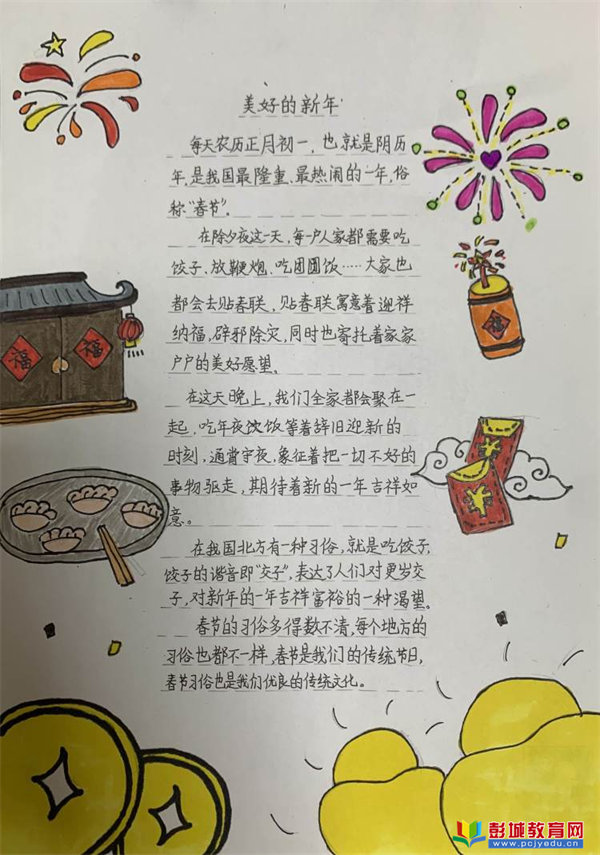 美好的新年
每天农历正月初一，也就是阴历
年，是我国最隆重、最热闹的一年，俗
称“春节”。
在除夕夜这一天，每一户人家都需要吃
饺子、放鞭炮、吃团圆饭……大家也
都会去贴春联，贴春联寓意着迎祥
纳福，辟邪除灾，同时也寄托着家家
户户的美好愿望。
在这天晚上，我们全家都会聚在一
起，吃年夜饮饭等着辞旧迎新的
时刻，通宵守夜，象征着把一切不好的
事物驱走，期待着新的一年吉祥如
意。
在我国北方有一种习俗，就是吃饺子，
饺子的谐音即“交子”，表达了人们对更岁交
子，对新年的一年吉祥富裕的一种渴望。
春节的习俗多得数不清，每个地方的
习俗也都不一样，春节是我们的传统节日，
春节习俗也是我们优良的传统文化。
福
福
彭城教育网
www.pcjyedu.cn